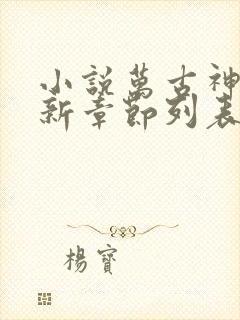 小說萬古神
新章節列表
楊寶